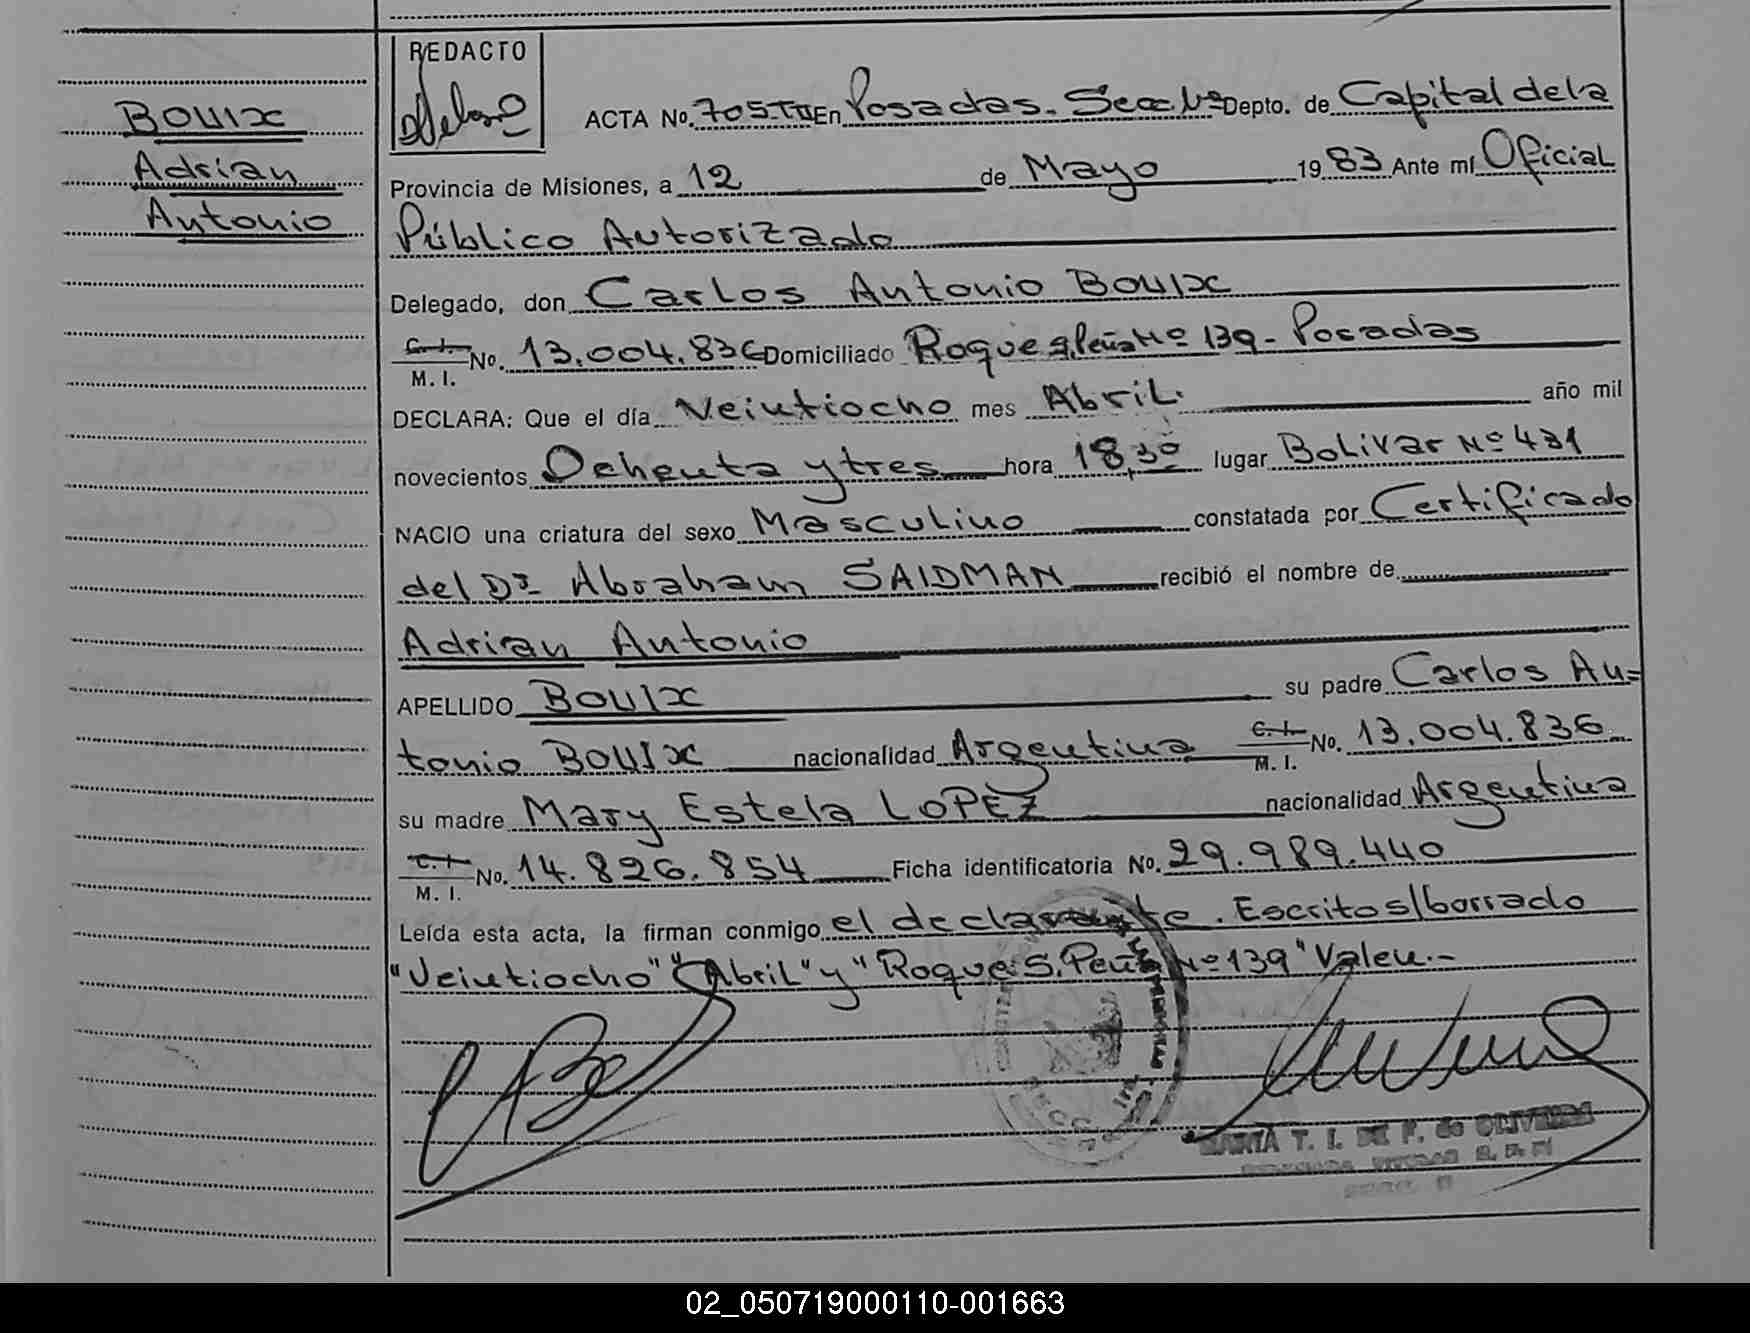 BOUIX
Adrian
Antonio
REDACTO
ACTA No. 705-TII En Posadas. Secc. 1ª Depto. de Capital de la
Provincia de Misiones, a 12 de Mayo 1983 Ante mí Oficial
Público Autorizado
Delegado, don Carlos Antonio BOUIX
C. I. M. I. No. 13.004.836 Domiciliado Roque S. Peña Nº 139 - Posadas
DECLARA: Que el día Veintiocho mes Abril. año mil
novecientos Ochenta y tres hora 18,30 lugar Bolivar Nº 431
NACIO una criatura del sexo Masculino constatada por Certificado
del Dr Abraham SAIDMAN recibió el nombre de
Adrian Antonio
APELLIDO BOUIX su padre Carlos An=
tonio BOUIX nacionalidad Argentina C. I. M. I. No. 13.004.836
su madre Mary Estela LOPEZ nacionalidad Argentina
C. I. M. I. No. 14.826.854 Ficha identificatoria No. 29.989.440
Leída esta acta, la firman conmigo el declarante. Escrito s/borrado
"Veintiocho" "Abril" y "Roque S. Peña Nº 139" Valen.-
MARIA T. I. DE F. de OLIVEIRA
02_050719000110-001663